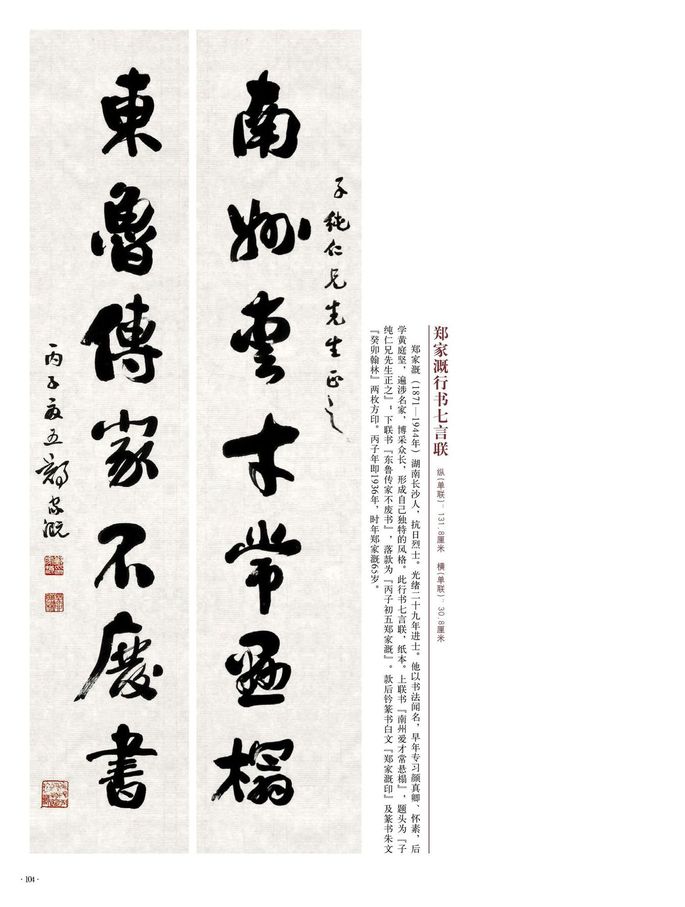 南州爱才常悬榻
子純仁兄先生正之
東魯傳家不廢書
丙子夏五鄭家溉
郑家溉行书七言联
纵(单联)：131.8厘米 横(单联)：30.8厘米
郑家溉（1871—1944年）湖南长沙人，抗日烈士。光绪二十九年进士。他以书法闻名，早年专习颜真卿、怀素，后
学黄庭坚，遍涉名家，博采众长，形成自己独特的风格。此行书七言联，纸本。上联书『南州爱才常悬榻』，题头为『子
纯仁兄先生正之』；下联书『东鲁传家不废书』，落款为『丙子初五郑家溉』。款后钤篆书白文『郑家溉印』及篆书朱文
『癸卯翰林』两枚方印。丙子年即1936年，时年郑家溉65岁。
· 104 ·